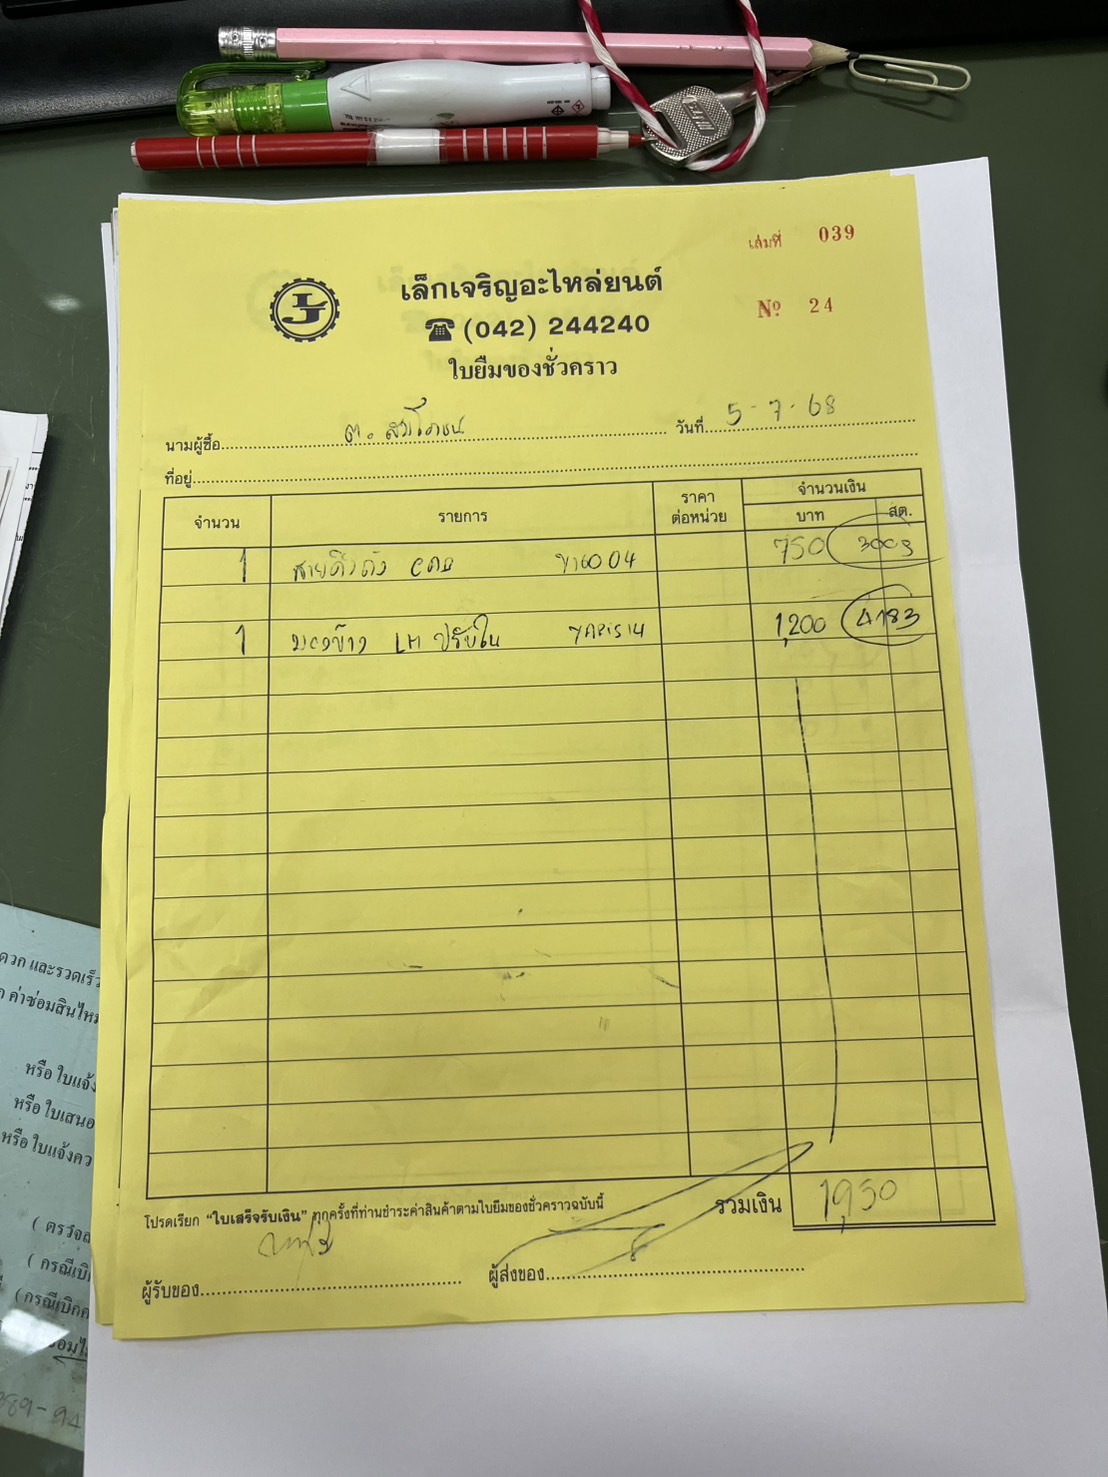 เล่มที่ 039
เล็กเจริญอะไหล่ยนต์
(042) 244240
Nº 24
ใบยืมของชั่วคราว
นามผู้ซื้อ วันที่ 5-7-68
ที่อยู่
จำนวน รายการ ราคาต่อหน่วย จำนวนเงิน
บาท สต.
1 CAB 04 750 3003
1 มองข้าง LH ปรับใน YARIS14 1,200 4183
รวมเงิน 1,950
โปรดเรียก "ใบเสร็จรับเงิน" ทุกครั้งที่ท่านชำระค่าสินค้าตามใบยืมของชั่วคราวฉบับนี้
ผู้รับของ ผู้ส่งของ
ดวก และรวดเร็ว
ค่าซ่อมสินไหม
หรือ ใบแจ้ง
หรือ ใบเสนอ
หรือ ใบแจ้งคว
( ตรวจส
( กรณีเบิ
(กรณีเบิกค
389-94